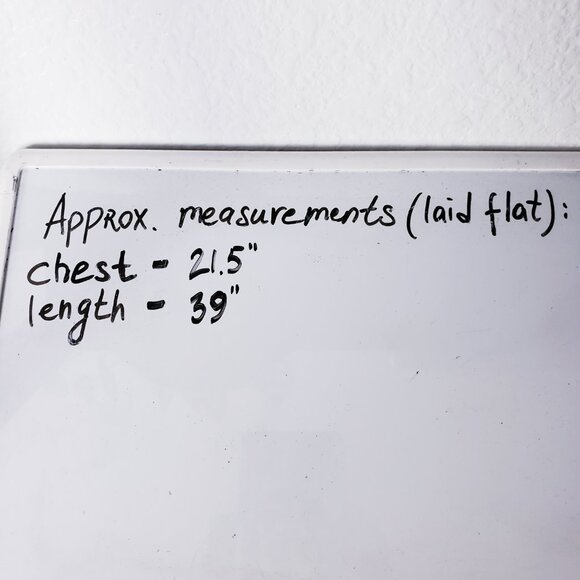 Approx. measurements (laid flat):
chest - 21.5"
length - 39"